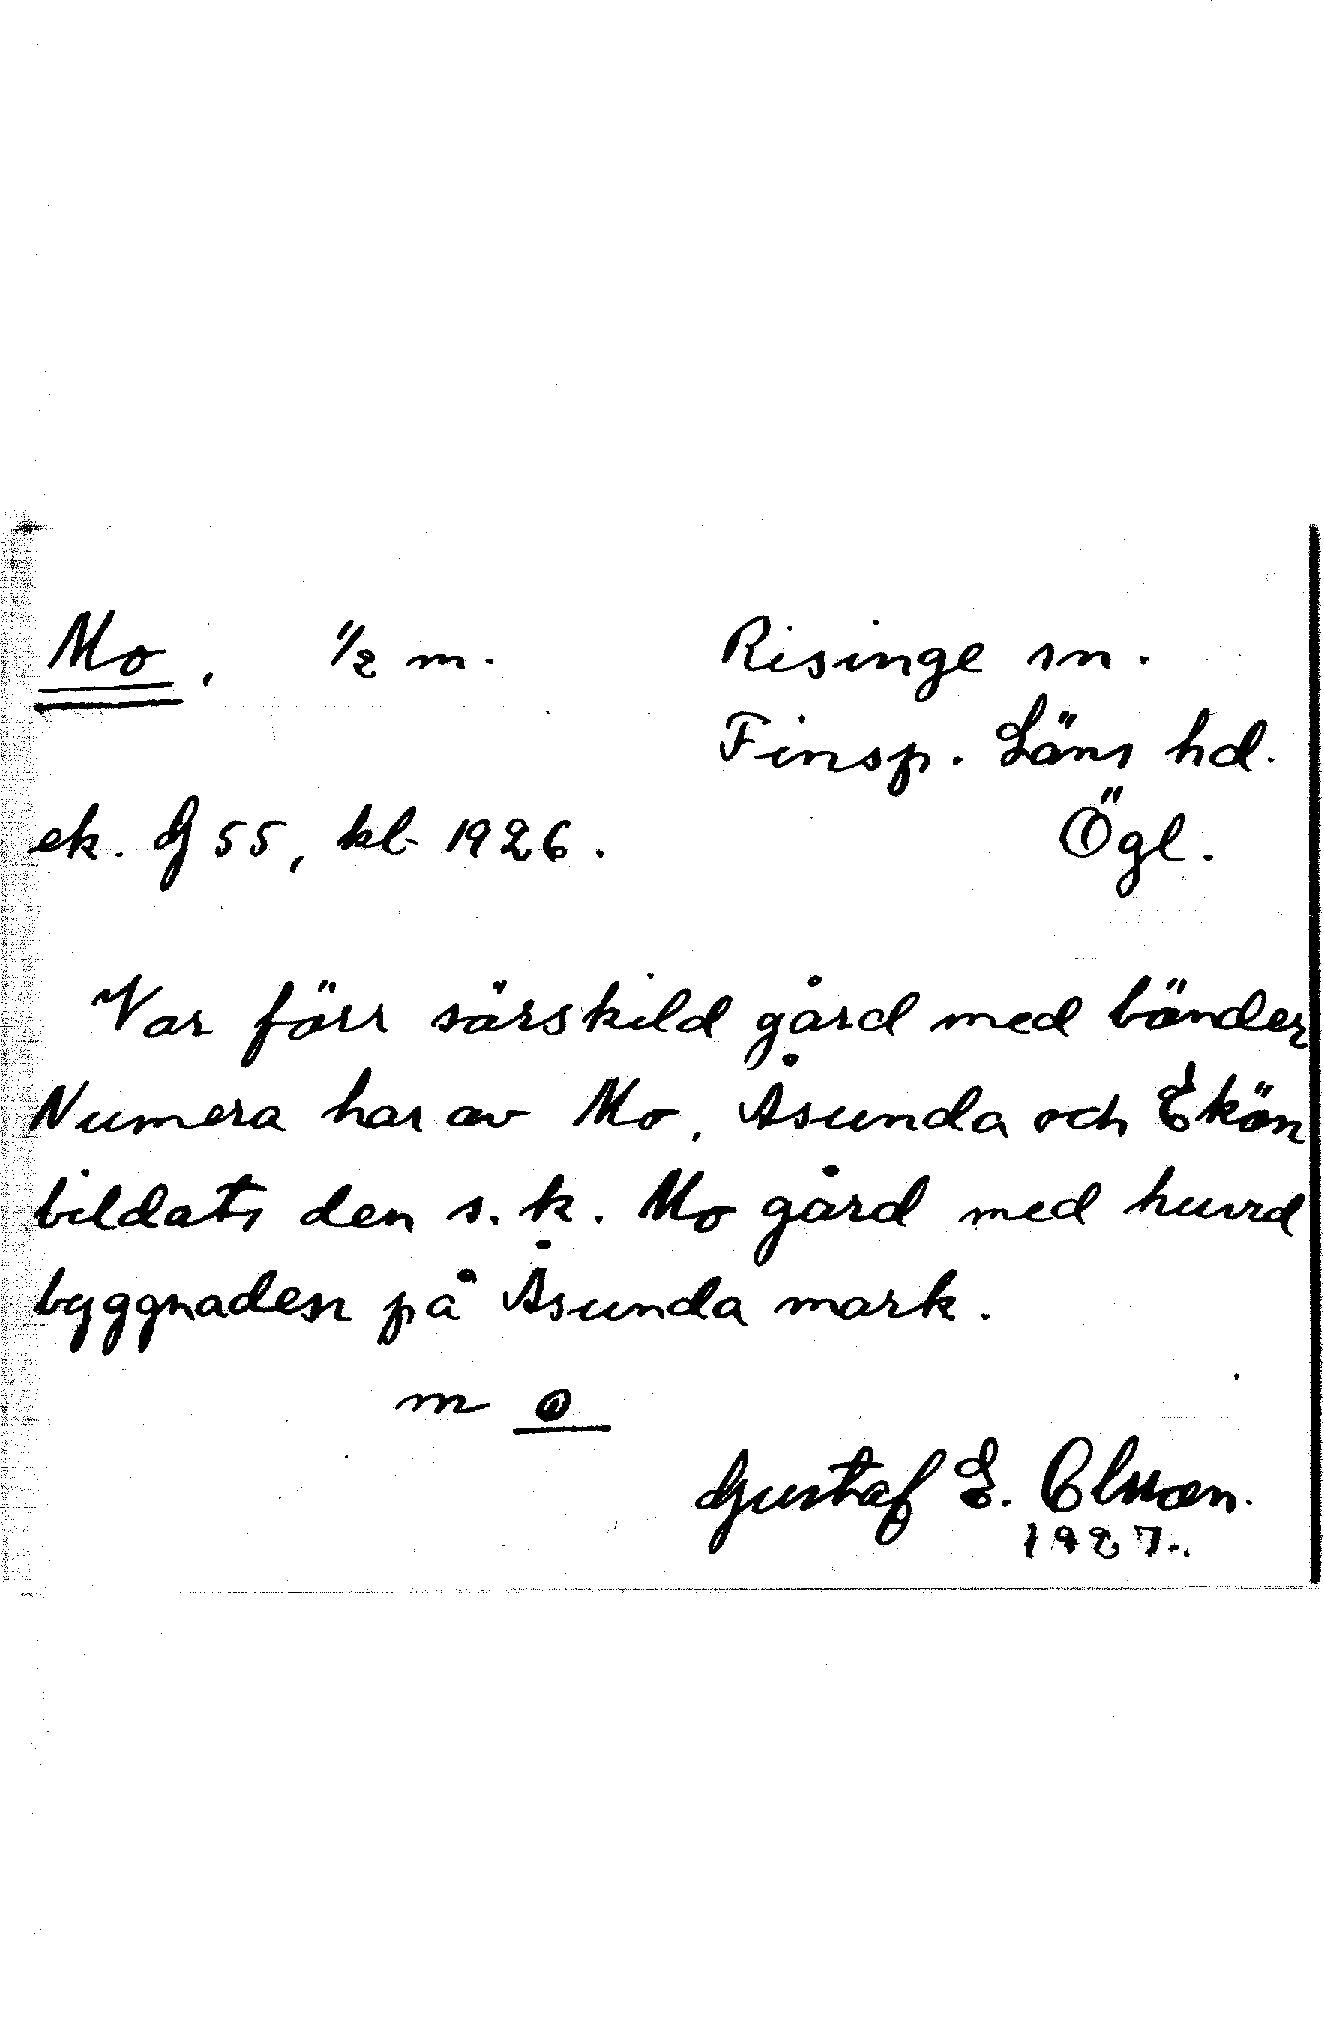 Mo, 1/2 m. Risinge sn.
Finsp. Läns hd.
ek. G 55, kb 1926. Ögl.
Var förr särskild gård med bönder
Numera har av Mo, Åsunda och Ekön
bildats den s.k. Mo gård med huvud
byggnaden på Åsunda mark.
m o
Gustaf E.
1927.